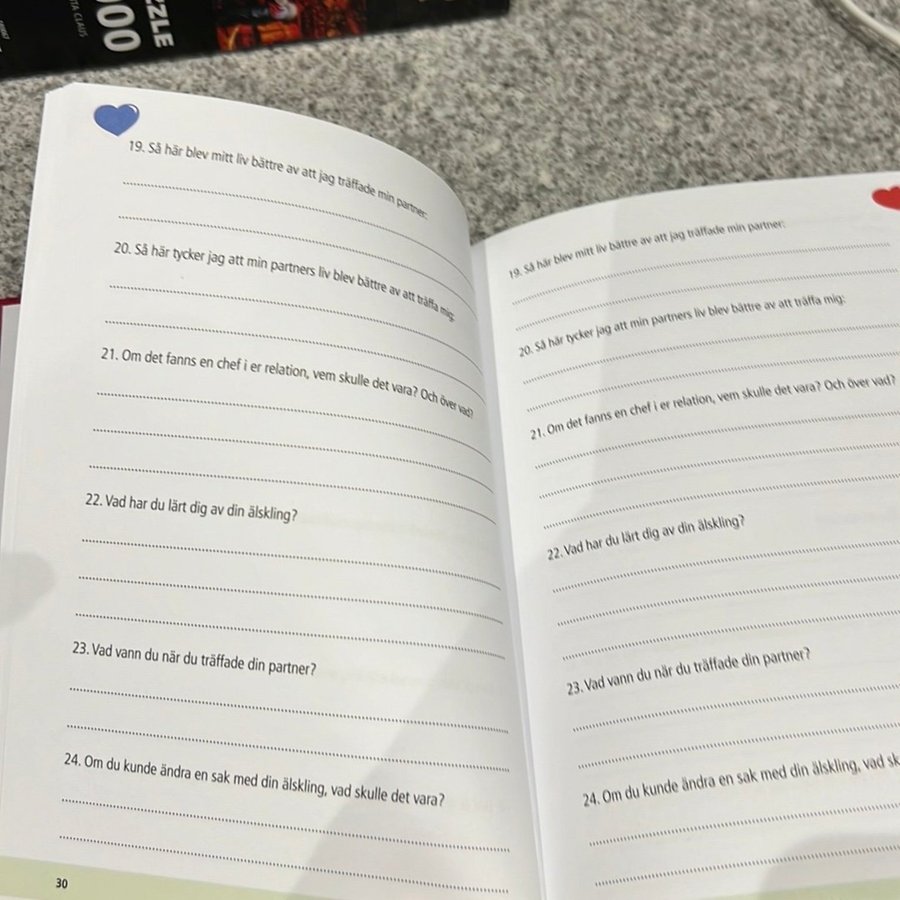 ZZLE
000
TA CLAUS
19. Så här blev mitt liv bättre av att jag träffade min partner:
20. Så här tycker jag att min partners liv blev bättre av att träffa mig:
21. Om det fanns en chef i er relation, vem skulle det vara? Och över vad?
22. Vad har du lärt dig av din älskling?
23. Vad vann du när du träffade din partner?
24. Om du kunde ändra en sak med din älskling, vad skulle det vara?
30
19. Så här blev mitt liv bättre av att jag träffade min partner:
20. Så här tycker jag att min partners liv blev bättre av att träffa mig:
21. Om det fanns en chef i er relation, vem skulle det vara? Och över vad?
22. Vad har du lärt dig av din älskling?
23. Vad vann du när du träffade din partner?
24. Om du kunde ändra en sak med din älskling, vad sk